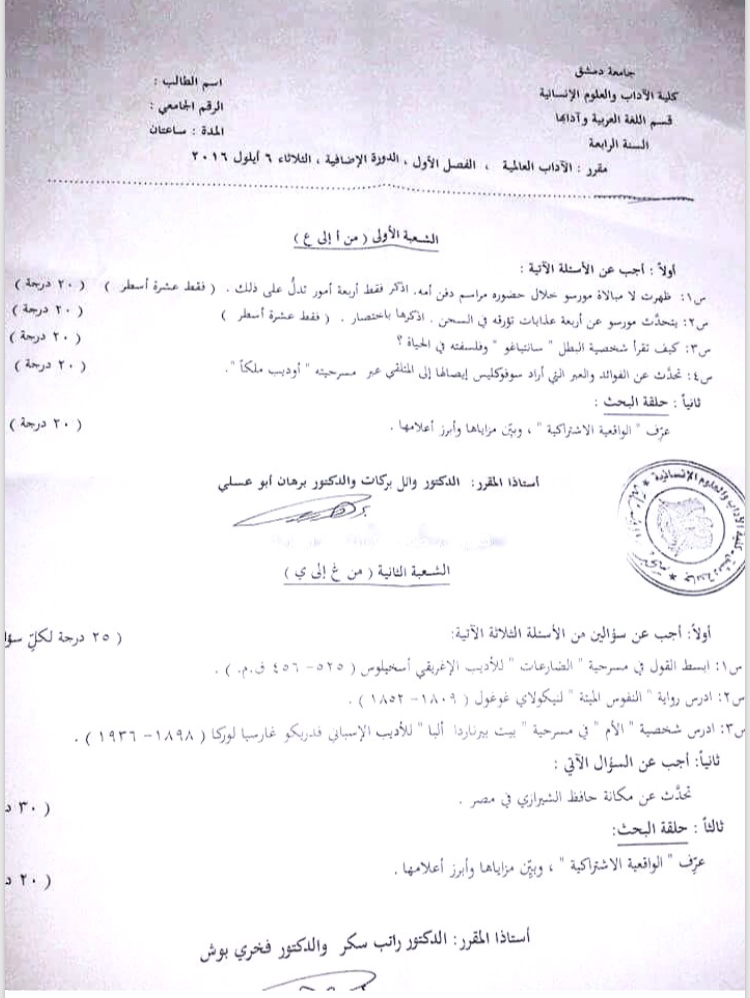 جامعة دمشق
كلية الآداب والعلوم الإنسانية
قسم اللغة العربية وآدابها
السنة الرابعة
اسم الطالب :
الرقم الجامعي :
المدة : ساعتان
مقرر : الآداب العالمية ، الفصل الأول ، الدورة الإضافية ، الثلاثاء ٦ أيلول ٢٠١٦
الشعبة الأولى ( من أ إلى ع )
أولاً : أجب عن الأسئلة الآتية :
س١: ظهرت لا مبالاة مورسو خلال حضوره مراسم دفن أمه. اذكر فقط أربعة أمور تدلُّ على ذلك . ( فقط عشرة أسطر ) ( ٢٠ درجة )
س٢: يتحدَّث مورسو عن أربعة عذابات تؤرقه في السجن . اذكرها باختصار . ( فقط عشرة أسطر ) ( ٢٠ درجة )
س٣: كيف تقرأ شخصية البطل " سانتياغو " وفلسفته في الحياة ؟ ( ٢٠ درجة )
س٤: تحدَّث عن الفوائد والعبر التي أراد سوفوكليس إيصالها إلى المتلقي عبر مسرحيته " أوديب ملكاً ". ( ٢٠ درجة )
ثانياً : حلقة البحث :
عرِّف " الواقعية الاشتراكية " ، وبيِّن مزاياها وأبرز أعلامها . ( ٢٠ درجة )
أستاذا المقرر: الدكتور وائل بركات والدكتور برهان أبو عسلي
الشعبة الثانية ( من غ إلى ي )
أولاً: أجب عن سؤالين من الأسئلة الثلاثة الآتية: ( ٢٥ درجة لكلّ سؤا
س١: ابسط القول في مسرحية " الضارعات " للأديب الإغريقي أسخيلوس ( ٥٢٥- ٤٥٦ ق.م. ) .
س٢: ادرس رواية " النفوس الميتة " لنيكولاي غوغول ( ١٨٠٩- ١٨٥٢ ) .
س٣: ادرس شخصية " الأم " في مسرحية " بيت بيرناردا ألبا " للأديب الإسباني فدريكو غارسيا لوركا ( ١٨٩٨- ١٩٣٦ ) .
ثانياً: أجب عن السؤال الآتي :
تحدَّث عن مكانة حافظ الشيرازي في مصر . ( ٣٠ د
ثالثاً : حلقة البحث:
عرِّف " الواقعية الاشتراكية " ، وبيِّن مزاياها وأبرز أعلامها . ( ٢٠ د
أستاذا المقرر: الدكتور راتب سكر والدكتور فخري بوش